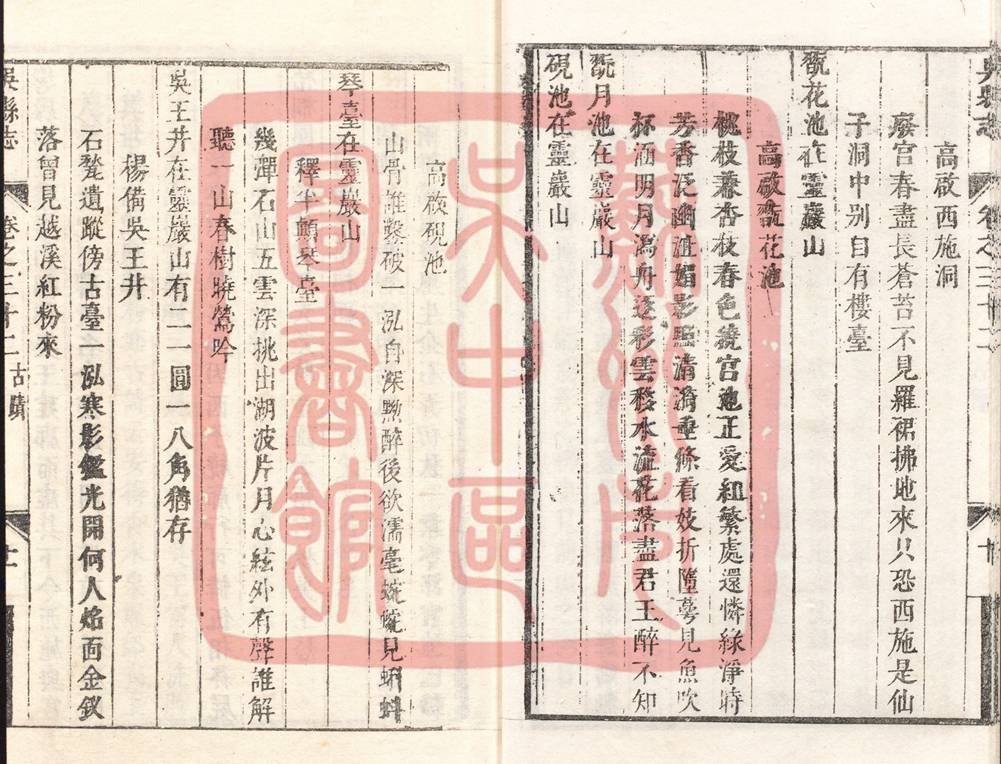 吳縣志 卷之三十二
高啟西施洞
廢宮春盡長蒼苔不見羅裙拂地來只恐西施是仙
子洞中別自有樓臺
翫花池在靈巖山
高啟翫花池
桃枝兼杏枝春色繞宮池正愛紅繁處還憐綠淨時
芳香泛幽渚媚影照清漪垂條看妓折墮萼見魚吹
杯涵明月瀉舟逐彩雲移水流花落盡君王醉不知
翫月池在靈巖山
硯池在靈巖山
高啟硯池
山骨誰鑿破一泓自深黝醉後欲濡毫蜿蜿見蝌蚪
琴臺在靈巖山
釋半顛琴臺
幾彈石山五雲深挑出湖波片月心絃外有聲誰解
聽一山春樹曉鶯吟
吳王井在靈巖山有二一圓一八角猶存
楊備吳王井
石甃遺蹤傍古臺一泓寒影鑑光開何人炤面金釵
落曾見越溪紅粉來
吳縣志 卷之三十二 古蹟 十一
蘇州市
吳中區
圖書館